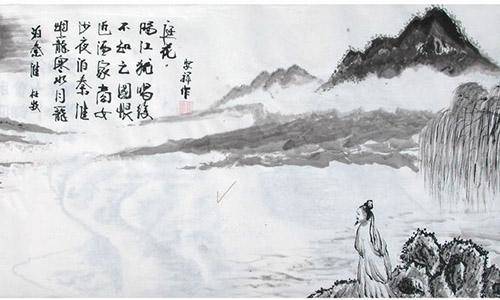 泊秦淮 杜牧
烟籠寒水月籠
沙夜泊秦淮
近酒家商女
不知亡國恨
隔江犹唱後
庭花
祥作